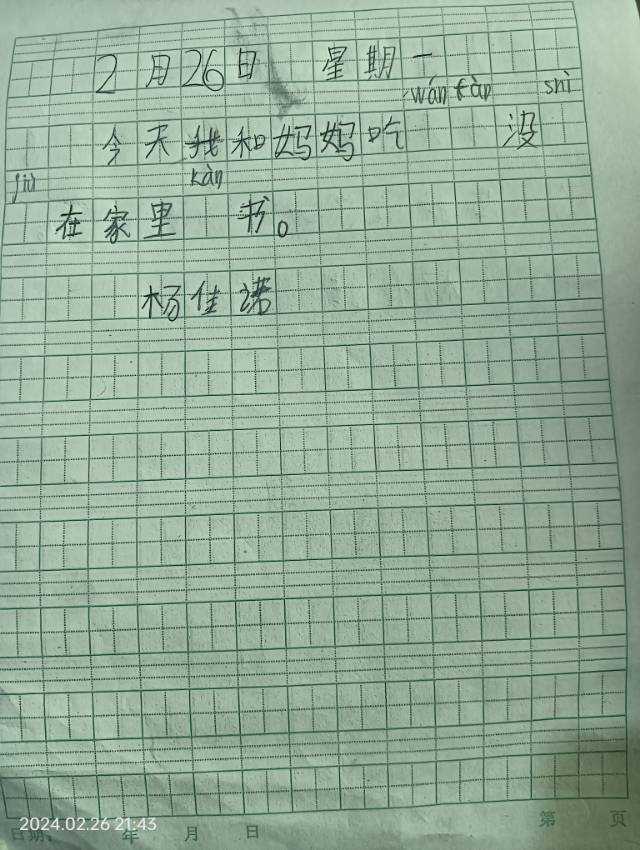 2月26日 星期一
今天我和妈妈吃wán fàn没shì
jiù在家里kàn书。
杨佳诺
2024.02.26 21:43
日期: 年 月 日 第 页